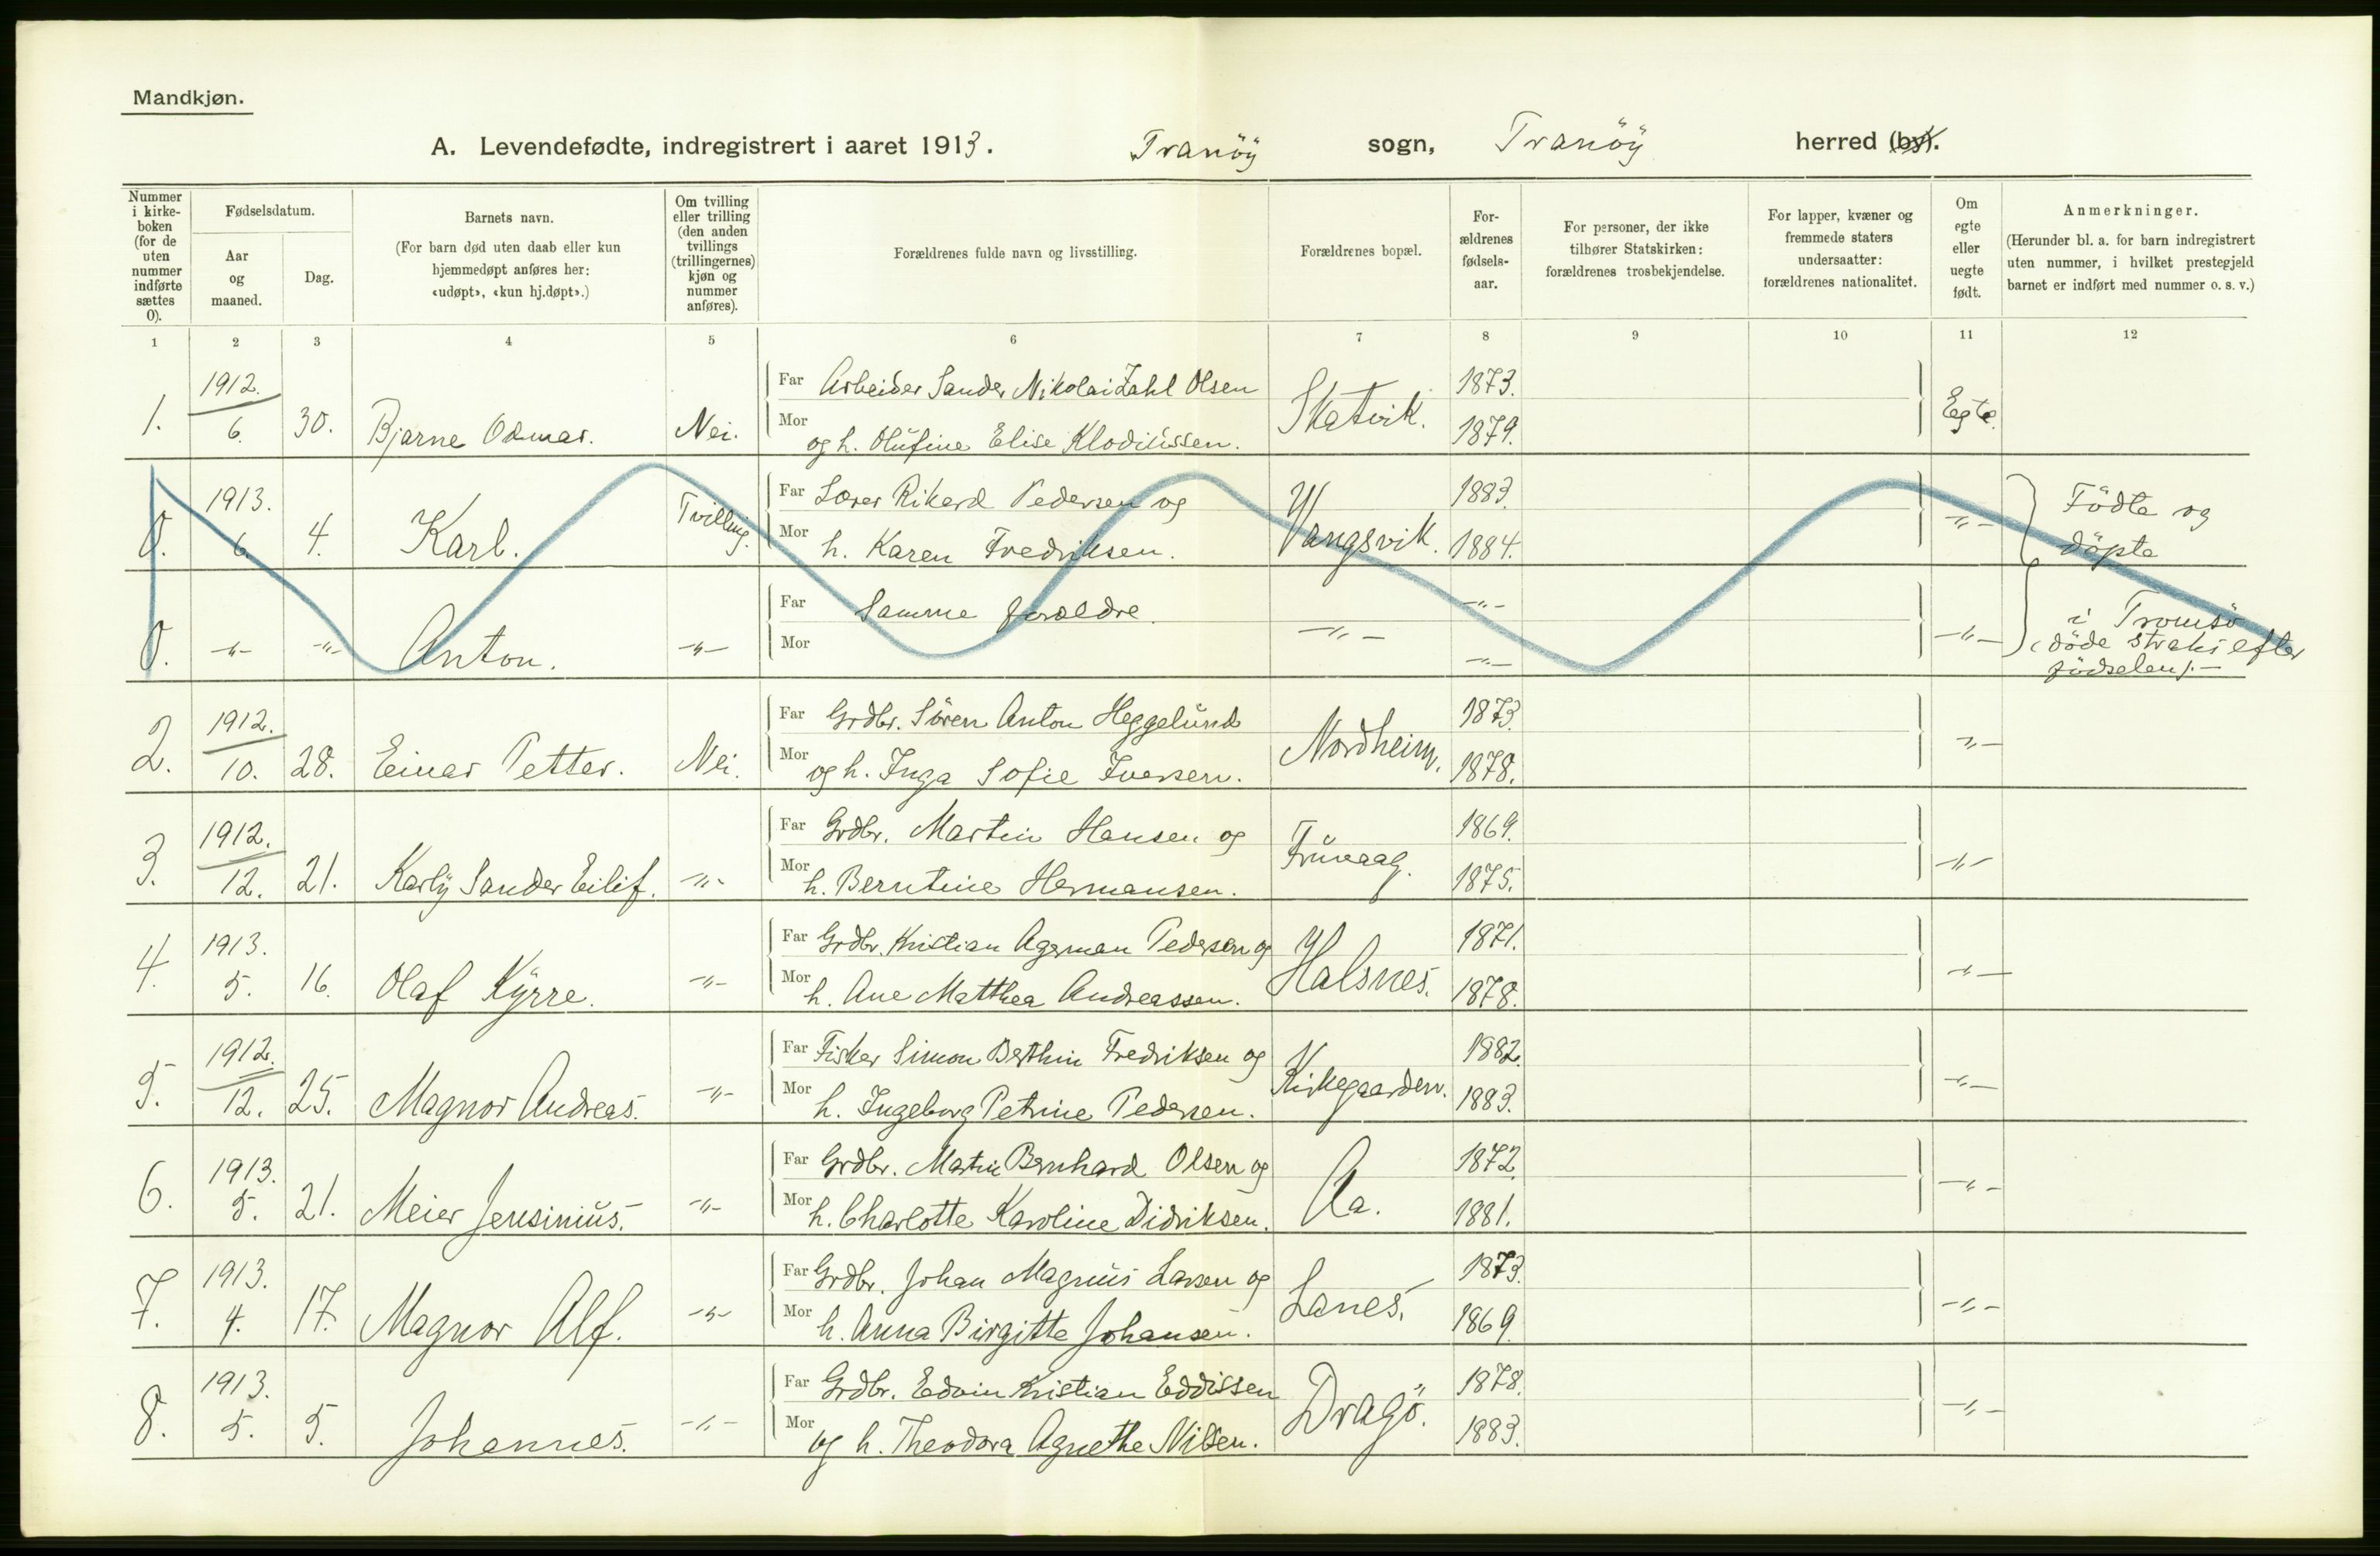 Mandkjøn.
A. Levendefødte, indregistrert i aaret 1913. Tranöÿ sogn, Tranöÿ herred (by).
Nummer i kirke-boken (for de uten nummer indførte sættes 0).
Fødselsdatum.
Aar og maaned.
Dag.
Barnets navn.
(For barn død uten daab eller kun hjemmedøpt anføres her: «udøpt», «kun hj.døpt».)
Om tvilling eller trilling (den anden tvillings (trillingernes) kjøn og nummer anføres).
Forældrenes fulde navn og livsstilling.
Forældrenes bopæl.
For-ældrenes fødsels-aar.
For personer, der ikke tilhører Statskirken: forældrenes trosbekjendelse.
For lapper, kvæner og fremmede staters undersaatter: forældrenes nationalitet.
Om egte eller uegte født.
Anmerkninger.
(Herunder bl. a. for barn indregistrert uten nummer, i hvilket prestegjeld barnet er indført med nummer o. s. v.)
1 2 3 4 5 6 7 8 9 10 11 12
1. 1912. 6. 30. Bjarne Odmar. Nei. Far Arbeider Sander Nikolai Zahl Olsen 1873.
Mor og h. Olufine Elise Klodiussen. Skatvik. 1879. Egte.
0. 1913. 6. 4. Karl. Tvilling. Far Lærer Rikard Pedersen og 1883.
Mor h. Karen Fredriksen. Vangsvik. 1884. -"- Födte og döpte
0. -"- -"- Anton. -"- Far Samme forældre. -"-
Mor -"- -"- -"- i Tromsö
(döde straks efter
födselen).-
2. 1912. 10. 28. Einar Petter. Nei. Far Grdbr. Sören Anton Heggelund 1873.
Mor og h. Inga Sofie Iversen. Nordheim. 1878. -"-
3. 1912. 12. 21. Karlÿ Sander Eilif. -"- Far Grdbr. Martin Hansen og 1869.
Mor h. Berntine Hermansen. Fruvaag. 1875. -"-
4. 1913. 5. 16. Olaf Kÿrre. -"- Far Grdbr. Kristian Agerman Pedersen og 1871.
Mor h. Ane Matthea Andreassen. Halsnes. 1878. -"-
5. 1912. 12. 25. Magnor Andreas. -"- Far Fisker Simon Berthin Fredriksen og 1882.
Mor h. Ingeborg Petrine Pedersen. Kirkegaarden. 1883. -"-
6. 1913. 5. 21. Meier Jensinius. -"- Far Grdbr. Martin Bernhard Olsen og 1872.
Mor h. Charlotte Karoline Didriksen. Aa. 1881. -"-
7. 1913. 4. 17. Magnor Alf. -"- Far Grdbr. Johan Magnus Larsen og 1873.
Mor h. Anna Birgitte Johansen. Lanes. 1869. -"-
8. 1913. 5. 5. Johannes. -"- Far Grdbr. Edvin Kristian Eddissen 1878.
Mor og h. Theodora Agnethe Nilsen. Dragö. 1883. -"-